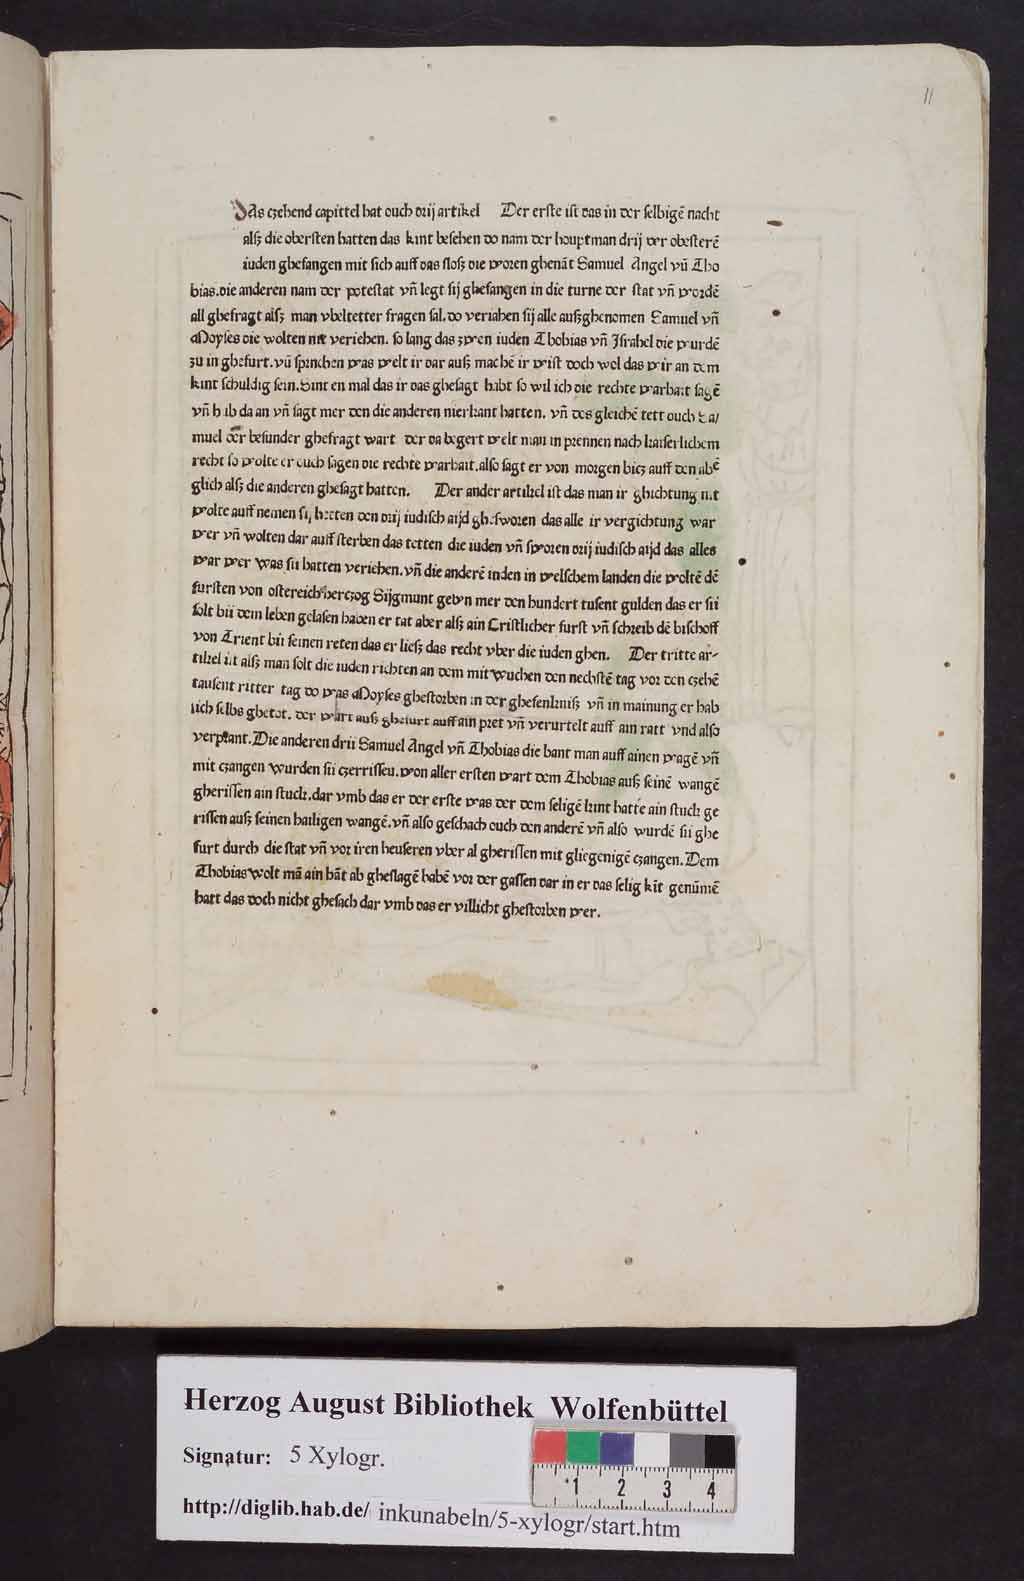 11
Das czehend capittel hat ouch drij artikel Der erste ist das in der selbigē nacht
alß die obersten hatten das kint besehen do nam der houptman drij der obesterē
iuden ghefangen mit sich auff das sloß die woren ghenāt Samuel Angel vn̄ Tho
bias.die anderen nam der potestat vn̄ legt sij ghefangen in die turne der stat vn̄ wordē
all ghefragt alß man vbeltetter fragen sal.do veriahen sij alle außghenomen Samuel vn̄
Moyses die wolten nit veriehen. so lang das zwen iuden Thobias vn̄ Israhel die wurdē
zu in ghefurt.vn̄ sprachen was welt ir dar auß machē ir wist doch wol das wir an dem
kint schuldig sein.Sint en mal das ir das ghesagt habt so wil ich die rechte warhait sagē
vn̄ hub da an vn̄ sagt mer den die anderen nier kant hatten. vn̄ des gleichē tett ouch Sa/
muel der besunder ghefragt wart der da begert welt man in prennen nach kaiserlichem
recht so wolte er ouch sagen die rechte warhait.also sagt er von morgen bicz auff den abē
glich alß die anderen ghesagt hatten. Der ander artikel ist das man ir ghichtung nit
wolte auff nemen sij hetten den drij iudisch aijd ghesworen das alle ir vergichtung war
wer vn̄ wolten dar auff sterben das tetten die iuden vn̄ sworen drij iudisch aijd das alles
war wer was sii hatten veriehen.vn̄ die anderē inden in welschem landen die woltē dē
fursten von ostereich hertzog Sijgmunt gebn mer den hundert tusent gulden das er sii
solt bii dem leben gelasen haben er tat aber alß ain Cristlicher furst vn̄ schreib dē bischoff
von Trient bii seinen reten das er ließ das recht vber die iuden ghen. Der tritte ar-
tikel ist alß man solt die iuden richten an dem mitwuchen den nechstē tag vor den czehē
tausent ritter tag do was Moyses ghestorben in der ghefenkniß vn̄ in mainung er hab
sich selbs ghetot. der wart auß ghefurt auff ain pret vn̄ verurtelt auff ain ratt vnd also
verprant.Die anderen drii Samuel Angel vn̄ Thobias die bant man auff ainen wagē vn̄
mit czangen wurden sii czerrissen.von aller ersten wart dem Thobias auß seinē wangē
gherissen ain stuck.dar vmb das er der erste was der dem seligē kint hatte ain stuck ge
rissen auß seinen hailigen wangē.vn̄ also geschach ouch den anderē vn̄ also wurdē sii ghe
furt durch die stat vn̄ vor iren heuseren vber al gherissen mit gliegenigē czangen.Dem
Thobias wolt mā ain hāt ab gheslagē habē vor der gassen dar in er das selig kīt genūmē
hatt das doch nicht ghesach dar vmb das er villicht ghestorben wer.
Herzog August Bibliothek Wolfenbüttel
Signatur: 5 Xylogr.
http://diglib.hab.de/ inkunabeln/5-xylogr/start.htm
1 2 3 4